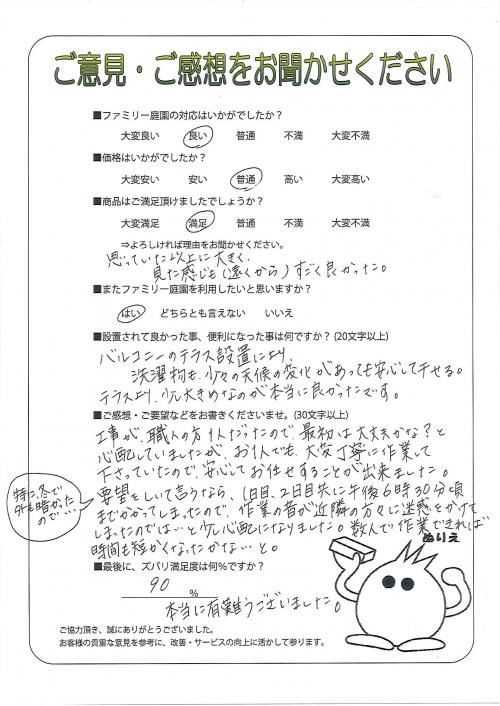 ご意見・ご感想をお聞かせください
■ファミリー庭園の対応はいかがでしたか？
大変良い 良い 普通 不満 大変不満
■価格はいかがでしたか？
大変安い 安い 普通 高い 大変高い
■商品はご満足頂けましたでしょうか？
大変満足 満足 普通 不満 大変不満
⇒よろしければ理由をお聞かせください。
思っていた以上に大きく、
見た感じも（遠くから）すごく良かった。
■またファミリー庭園を利用したいと思いますか？
はい どちらとも言えない いいえ
■設置されて良かった事、便利になった事は何ですか？（20文字以上）
バルコニーのテラス設置により、
洗濯物も、少々の天候の変化があっても安心して干せる。
テラスより、少し大きめなのが本当に良かったです。
■ご感想・ご要望などをお書きくださいませ。（30文字以上）
工事が、職人の方1人だったので、最初は大丈夫かな？と
心配していましたが、お1人でも、大変丁寧に作業して
下さっていたので、安心してお任せすることが出来ました。
要望をしいて言うなら、1日目、2日目共に午後6時30分頃
までかかってしまったので、作業の音が近隣の方々に迷惑をかけて
しまったのでは…と少し心配になりました。数人で作業できれば
時間も短かくなったかな…と。
特に、冬で
外も暗かった
ので…
ぬりえ
■最後に、ズバリ満足度は何％ですか？
90 %
本当に有難うございました。
ご協力頂き、誠にありがとうございました。
お客様の貴重な意見を参考に、改善・サービスの向上に活かして参ります。